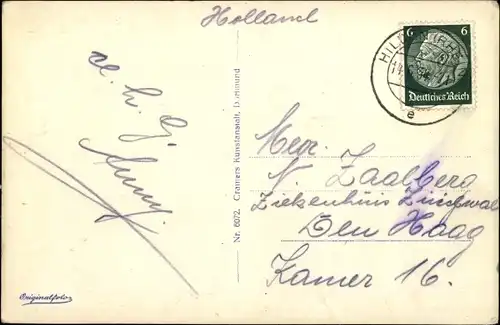 Holland
6 6
Deutsches Reich
e
Nr. 6072. Cramers Kunstanstalt, Dortmund
Mevr.
N. Zaalberg
Ziekenhuis
Den Haag
Kamer 16.
Originalfoto